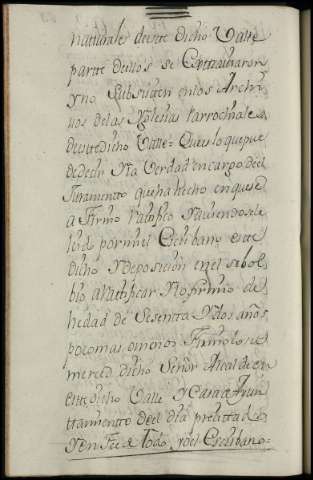 naturales deeste dicho Valle
parte dellos se Extraviaron
y no Subsisten en los Archi
vos de las Yglesias Parrochiales
de este dicho Valle: Que es lo que pue
de decir y la Verdad en cargo del
Juramento que ha hecho en que se
afirmo ratifico y haviendosele
leido por mi el Escribano este
dicho y deposicion en el se bol
bio a ratificar y lo firmo de
hedad de Sesenta y dos años
poco mas o menos firmolo su
merced dicho Señor Alcalde de
este dicho Valle y Casa de Ayun
tamiento del dia precitado
y en Fee de todo yo el Escribano=